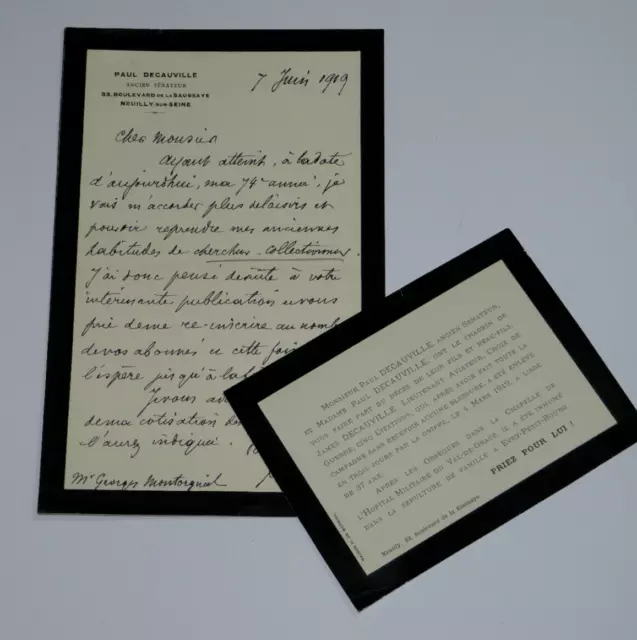 PAUL DECAUVILLE
ANCIEN SÉNATEUR
33, BOULEVARD DE LA SAUSSAYE
NEUILLY-SUR-SEINE
7 Juin 1919
Cher Monsieur
Ayant atteint, à la date
d'aujourd'hui, ma 74e année, je
vais m'accorder plus de loisirs et
pouvoir reprendre mes anciennes
habitudes de chercheur-collectionneur.
J'ai donc pensé de suite à votre
intéressante publication et vous
prie de me re-inscrire au nomb
de vos abonnés et cette fois
l'espère jusqu'à la
Je vous
de ma cotisation
l'aurez indiqué.
Mr Georges Montorgueil
MONSIEUR PAUL DECAUVILLE, ANCIEN SÉNATEUR,
ET MADAME PAUL DECAUVILLE, ONT LE CHAGRIN DE
VOUS FAIRE PART DU DÉCÈS DE LEUR FILS ET BEAU-FILS,
JAMES DECAUVILLE, LIEUTENANT AVIATEUR, CROIX DE
GUERRE, CINQ CITATIONS, QUI, APRÈS AVOIR FAIT TOUTE LA
CAMPAGNE SANS RECEVOIR AUCUNE BLESSURE, A ÉTÉ ENLEVÉ
EN TROIS JOURS PAR LA GRIPPE, LE MARS 1919, A L'AGE
DE 37 ANS.
APRÈS LES OBSÈQUES DANS LA CHAPELLE DE
L'HOPITAL MILITAIRE DU VAL-DE-GRACE, IL A ÉTÉ INHUMÉ
DANS LA SÉPULTURE DE FAMILLE A EVRY-PETIT-BOURG
PRIEZ POUR LUI !
Neuilly, 33, Boulevard de la Saussaye